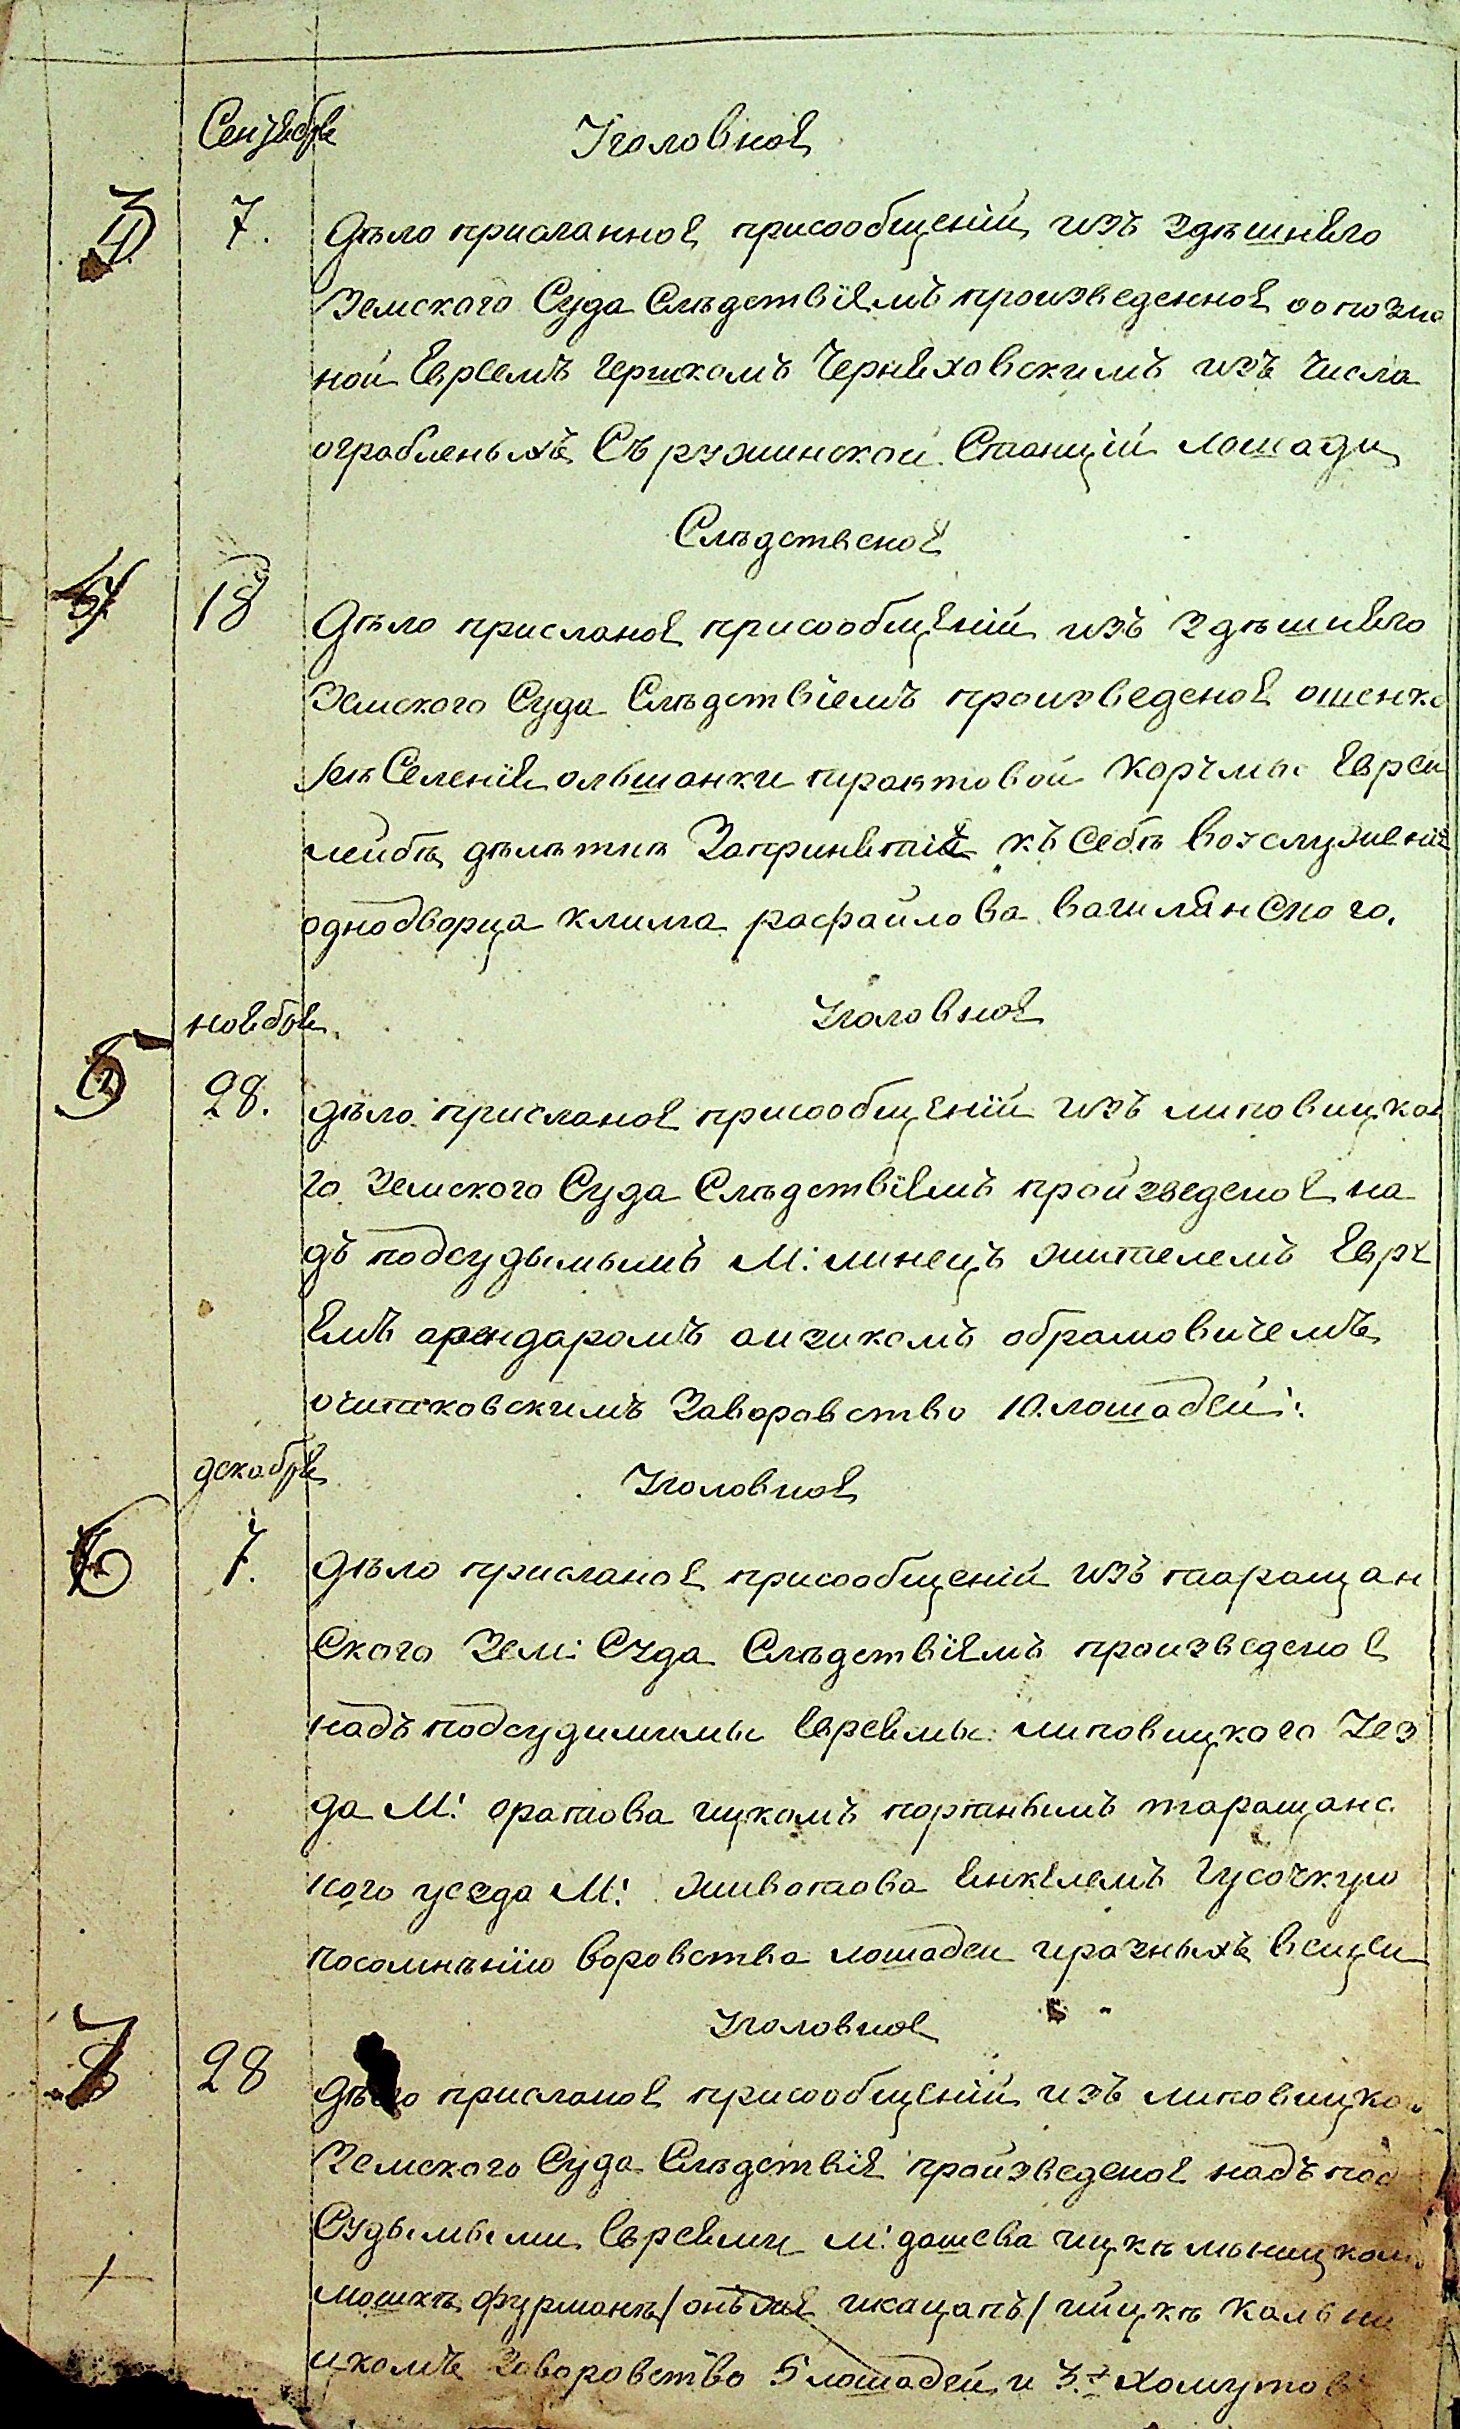 Сентября Уголовное
3 7. Дѣло присланное присообщеніи изъ здѣшняго
Земского Суда Слѣдствіемъ произведенное оопозна
ной Евреемъ Гершкомъ Черняховскимъ изъ числа
ограбленыхъ Съ ружинской Станціи лошади
Слѣдственое
4 18 Дѣло присланое присообщеніи изъ здѣшняго
Земского Суда Слѣдствіемъ произведеное ошенка
рѣ Селенія ольшанки трактовой корчмы Евреи
лейбѣ Запринятіе къ Себѣ вослуженіе
однодворца клима рафаилова вагилянского.
ноября Уголовное
5 28. дѣло присланое присообщеніи изъ липовицко
го Земского Суда Слѣдствіемъ произведеное на
дъ подсудымымъ М: линецъ жителемъ Евре
емъ арендаромъ аизикомъ абрамовичемъ
очитковскимъ Заворовство 10. лошадей:
декабря Уголовное
6 7. дѣло присланое присообщеніи изъ таращан
Ского Зем: Суда Слѣдствіемъ произведеное
надъ подсудимымы Евреямы липовицкого Уез
да М: оратова ицкомъ портнымъ таращанс
кого уезда М: животова Енкелемъ Гусочкую
посомнѣнію воровства лошадеи иразныхъ вещеи
Уголовное
7 28 дѣло присланое присообщеніи изъ липовицко
Земского Суда Слѣдствіе произведеное надъ под
Судымыми Евреями М: дашева ицкѣ
мошкѣ фурманѣ / онъже икацапъ / ийцкѣ кальни
цкомъ Заворовство 5 лошадей и 3.х хомутов